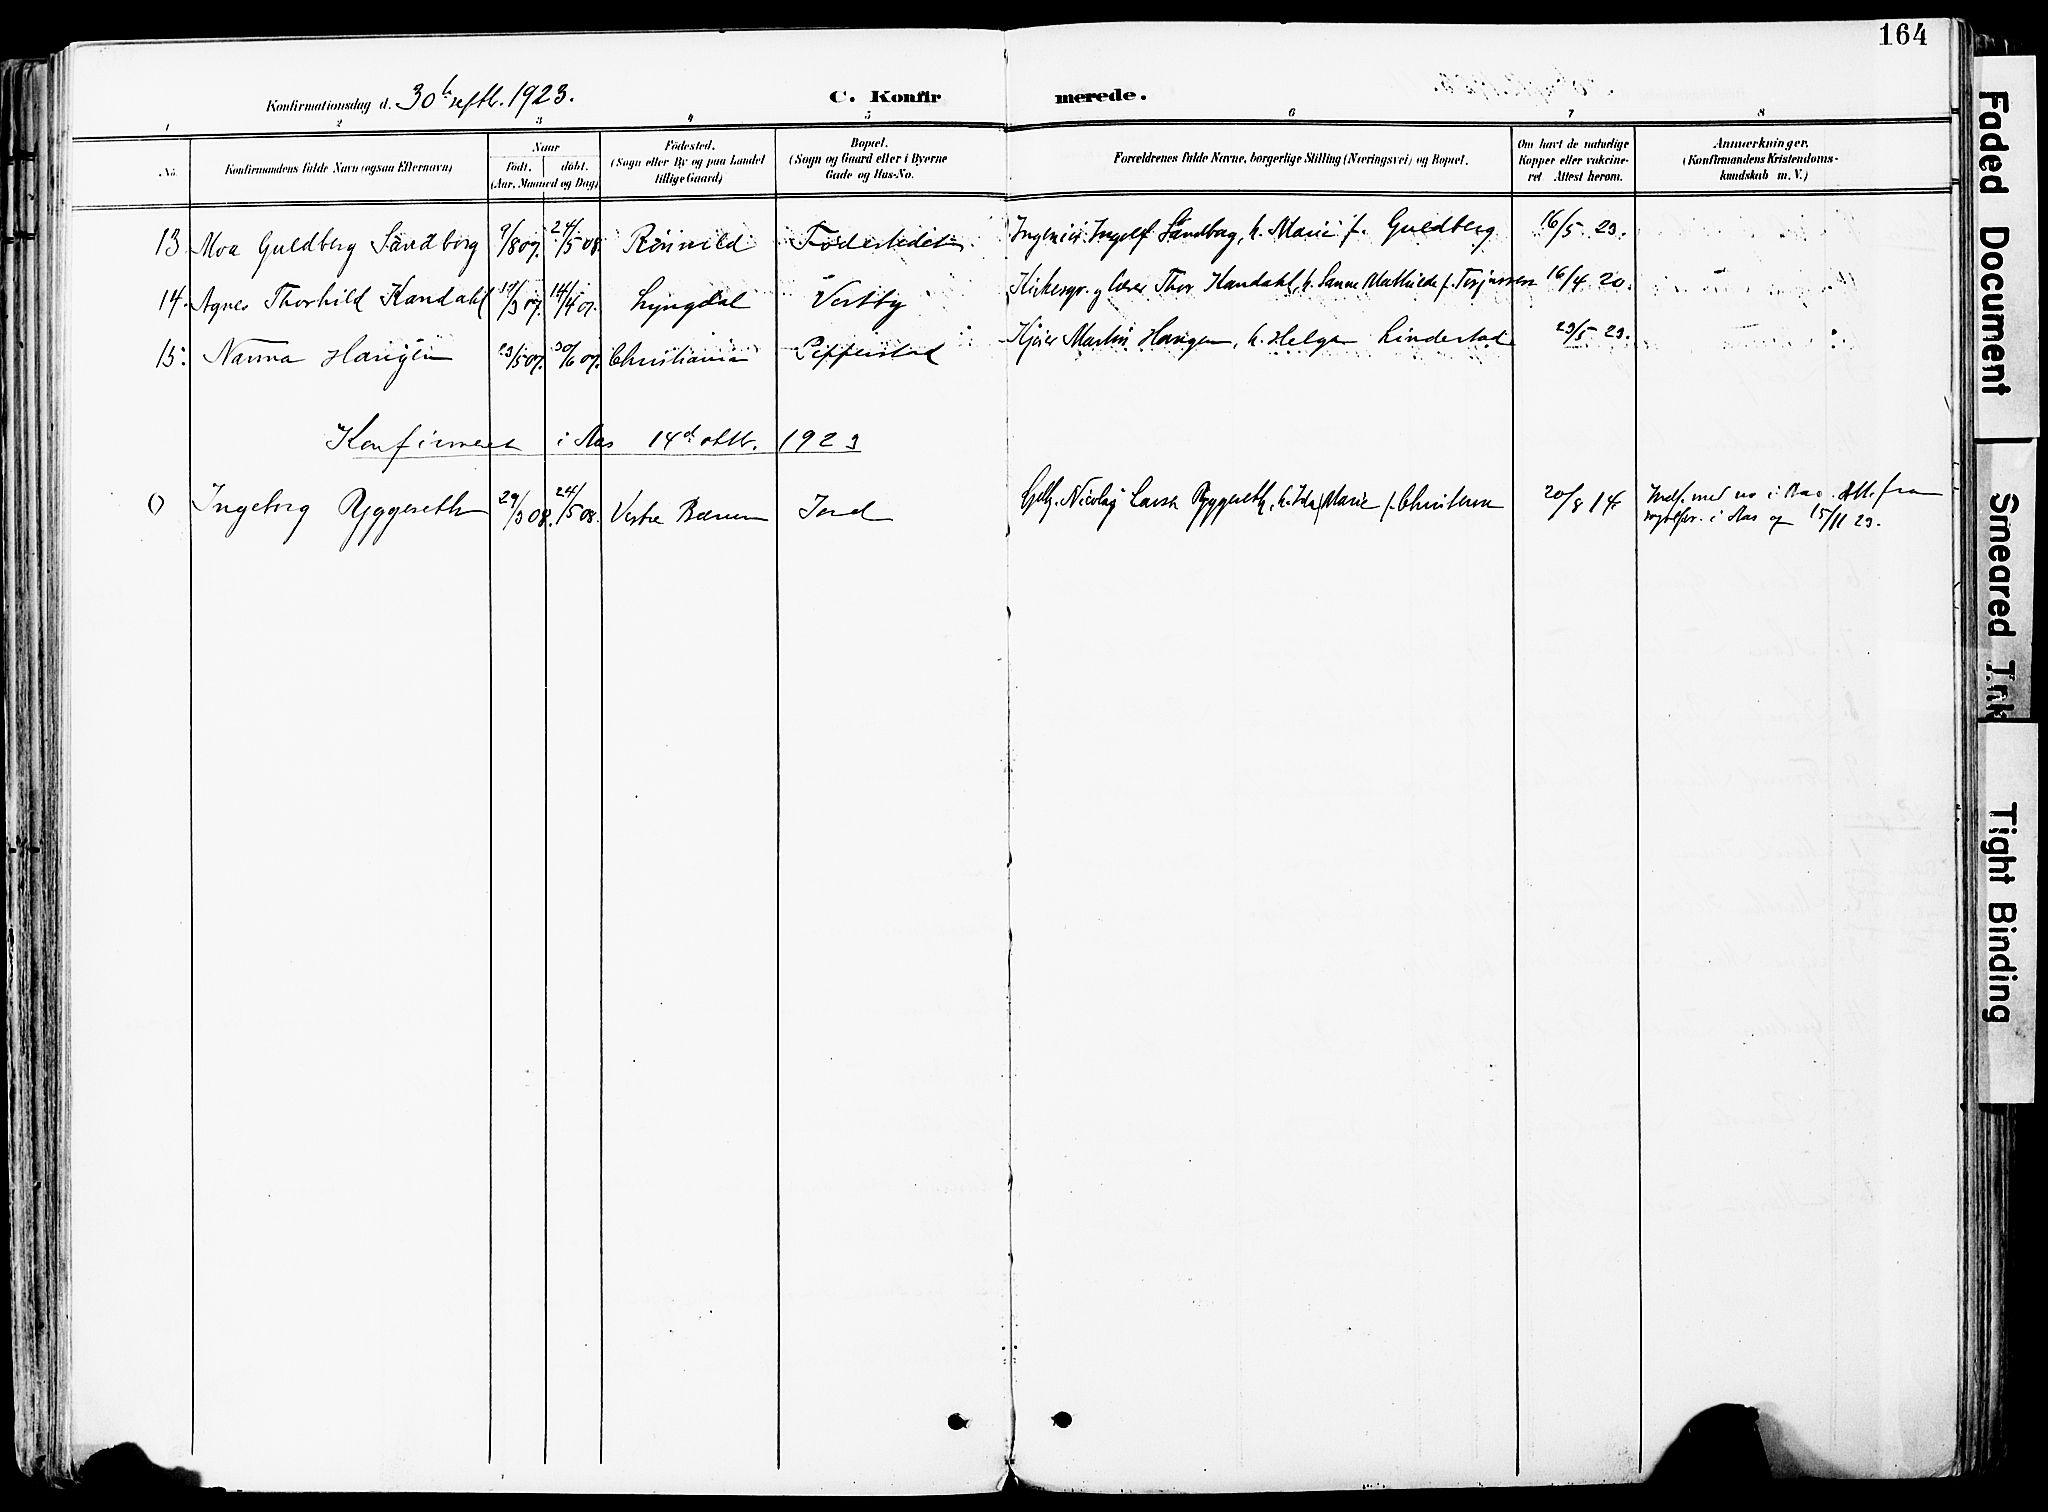 164
Konfirmationsdag d. 30te septbr. 1923. C. Konfir merede.
1 2 3 4 5 6 7 8
No. Konfirmandens fulde Navn (ogsaa Efternavn) Naar Födt. döbt. (Aar, Maaned og Dag) Födested. (Sogn eller By og paa Landet tillige Gaard) Bopæl. (Sogn og Gaard eller i Byerne Gade og Hus-No. Forældrenes fulde Navne, borgerlige Stilling (Næringsvei) og Bopæl. Om havt de naturlige Kopper eller vakcineret Attest herom. Anmærkninger. (Konfirmandens Kristendomskundskab m. V.)
13 Moa Guldberg Sandborg 9/8 07. 24/5 08 Födestedet Ingeniör Ingolf Sandbog, h. Marie f. Guldberg 16/5 23.
14. Agnes Thorhild Kandahl 17/3 07. 14/4 07. Lyngdal Vestby Kirkesgr. og lærer Thor Kandahl, h. Sanne Mathilde f. Terjussen 16/4 20.
15. Nanna Haugen 23/5 07. 30/6 07. Christiania Pepperstad Martin Haugen, h. Helga Linderstad 23/5 23.
Konfirmeret i Aas 14de oktbr. 1923
() Ingeborg Ryggeseth 29/3 08. 24/5 08. Vestre Bærum Gbr. Nicolay Larsen Ryggeseth, h. Ida Marie f. Christensen 20/8 14. Indf. med no i Aas. Att. fra
sogneprs. i Aas af 15/11 23.
Faded Document
Smeared Ink
Tight Binding